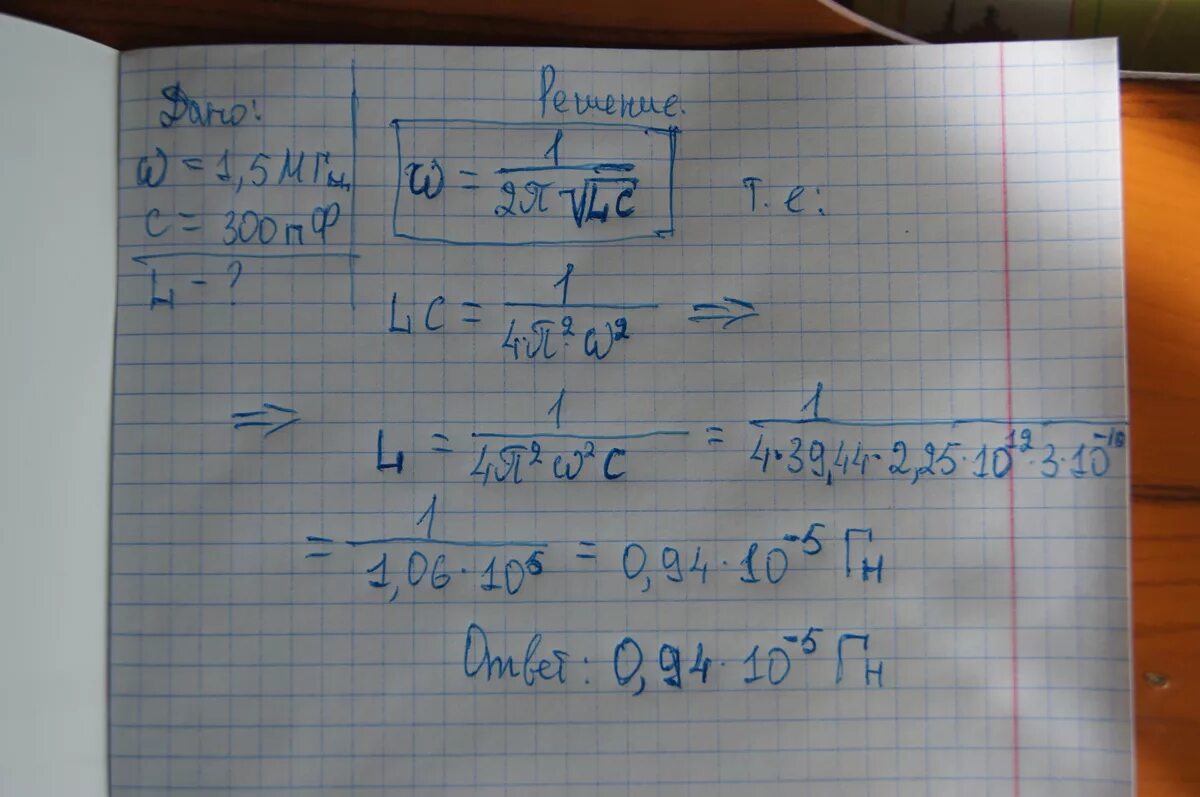 Дано:
ω = 1,5 МГц
C = 300 пФ
L - ?
Решение.
ω = 1 / 2π √LC т.е:
LC = 1 / 4·π²·ω² ⇒
⇒ L = 1 / 4π²ω²C = 1 / 4·39,44·2,25·10¹²·3·10⁻¹⁰
= 1 / 1,06·10⁵ = 0,94·10⁻⁵ Гн
Ответ: 0,94·10⁻⁵ Гн